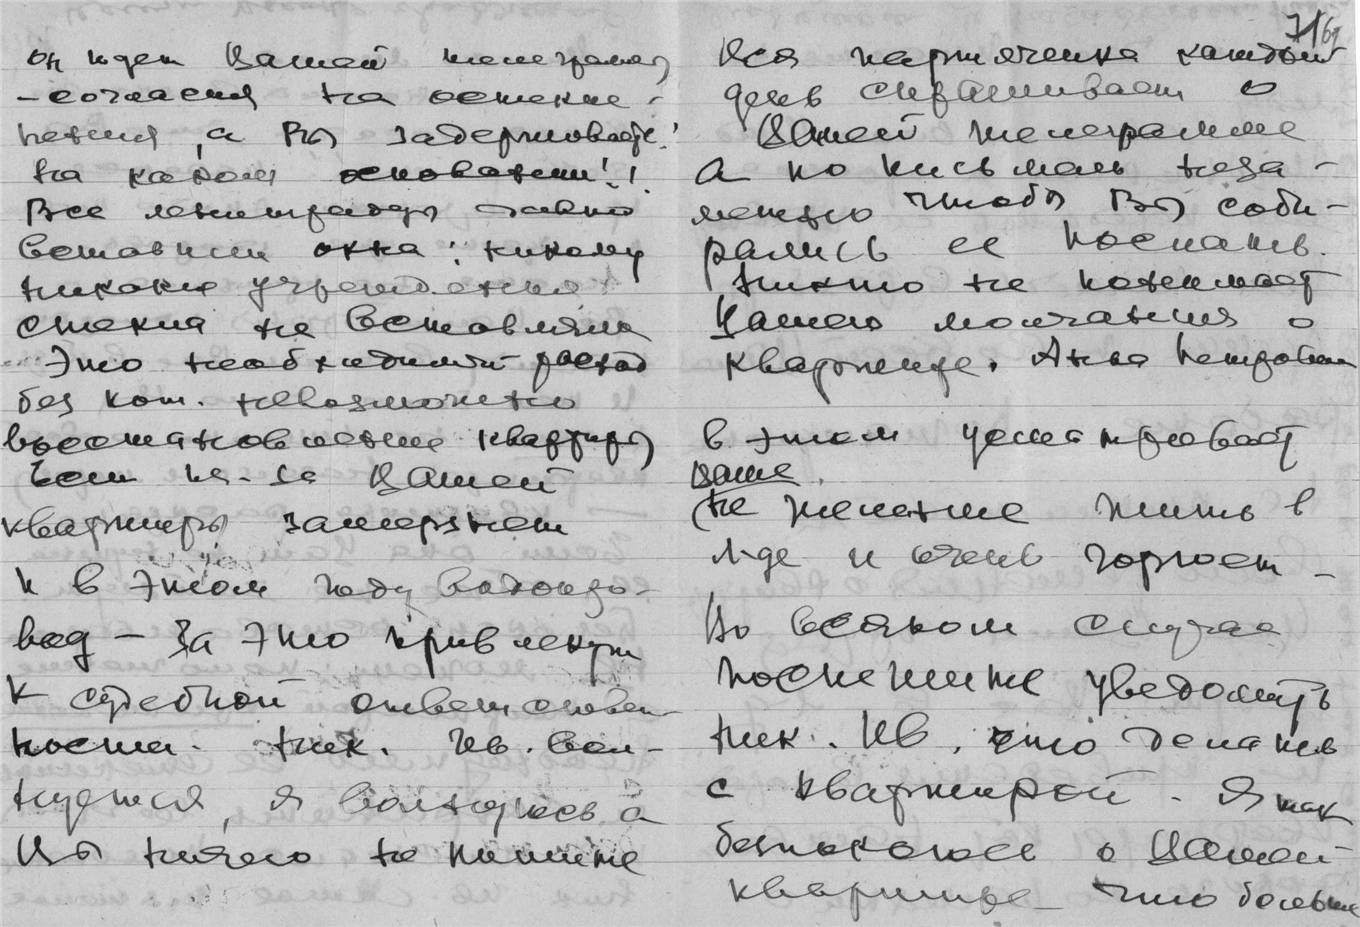 он ждет Вашей телеграммы
-согласия на остекле-
нения, а Вы задерживаете!
На каком основании!!
Все ленинградцы давно
вставили окна: никому
никакие учреждения
стекла не вставляли
Это необходимый расход
без кот. невозможно
восстановление квартиры
Если из-за Вашей
квартиры замерзнет
и в этом году водопро-
вод – за это привлекут
к судебной ответствен-
ности. Ник. Ив. вол-
нуется, я волнуюсь а
Вы ничего не пишите
71 69
Вся каждый
день спрашивает о
Вашей телеграмме
а по письмам неза-
метно чтобы Вы соби-
рались ее послать.
Никто не понимает
Вашего молчания о
квартире. Анна Петровна
в этом усматривает
Ваше
(не желание жить в
Л-де и очень горюет –
Во всяком случае
поспешите уведомить
Ник. Ив. что делать
с квартирой. Я так
беспокоюсь о Вашей
квартире что больше